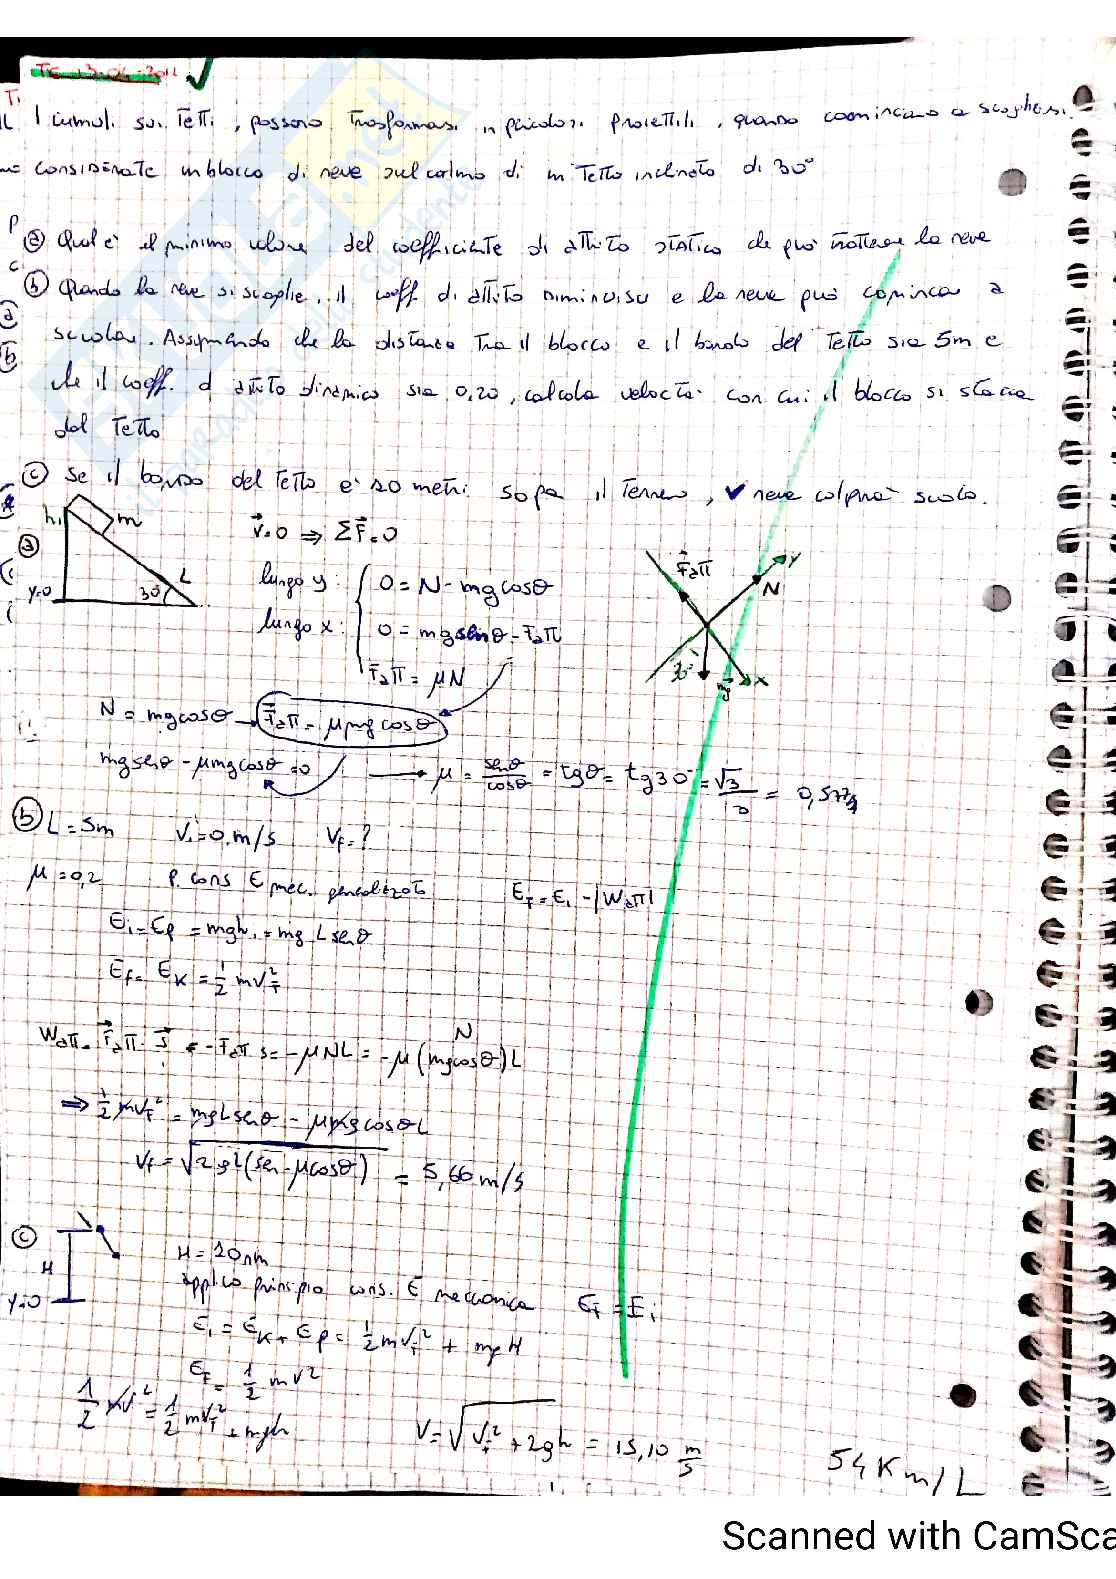 TE 13-04-2012
I cumuli sui Tetti, possono Trasformarsi in pericolosi proiettili, quando cominciano a sciogliersi.
considerate un blocco di neve sul colmo di un Tetto inclinato di 30°
ⓐ Qual è il minimo valore del coefficiente di attrito statico che può trattenere la neve
ⓑ Quando la neve si scioglie, il coeff. di attrito diminuisce e la neve può cominciare a
scivolare. Assumendo che la distanza tra il blocco e il bordo del Tetto sia 5m e
che il coeff. d attrito dinamico sia 0,20, calcola velocità con cui il blocco si stacca
dal Tetto
ⓒ Se il bordo del Tetto è 10 metri sopra il Terreno, v neve colpirà suolo.
h₁ m L 30° y=0
ⓐ v⃗=0 ⇒ ΣF⃗=0
lungo y: 0 = N - mgcosθ
lungo x: 0 = mgsenθ - Fatt
Fatt = μN
Fatt y N 30° mg x
N = mgcosθ → Fatt = μmgcosθ
mgsenθ - μmgcosθ = 0 → μ = senθ/cosθ = tgθ = tg30° = √3/3 = 0,577
ⓑ L = 5m Vi=0 m/s Vf=?
μ=0,2 P. cons E mec. generalizzato Ef = Ei - |Watt|
Ei = Ep = mgh₁ = mg L senθ
Ef = EK = 1/2 mVf²
Watt = F⃗att · s⃗ = -Fatt s = -μNL = -μ(mgcosθ)L
N
⇒ 1/2 mVf² = mgLsenθ - μmgcosθL
Vf = √2gL(sen-μcosθ) = 5,66 m/s
ⓒ H y=0
H = 10m
applico principio cons. E meccanica Ef = Ei
Ei = EK + Ep = 1/2 mVf² + mgH
Ef = 1/2 mV²
1/2 mV² = 1/2 mVf² + mgh
V = √Vf² + 2gh = 15,10 m/s
54 Km/h
Scanned with CamSca